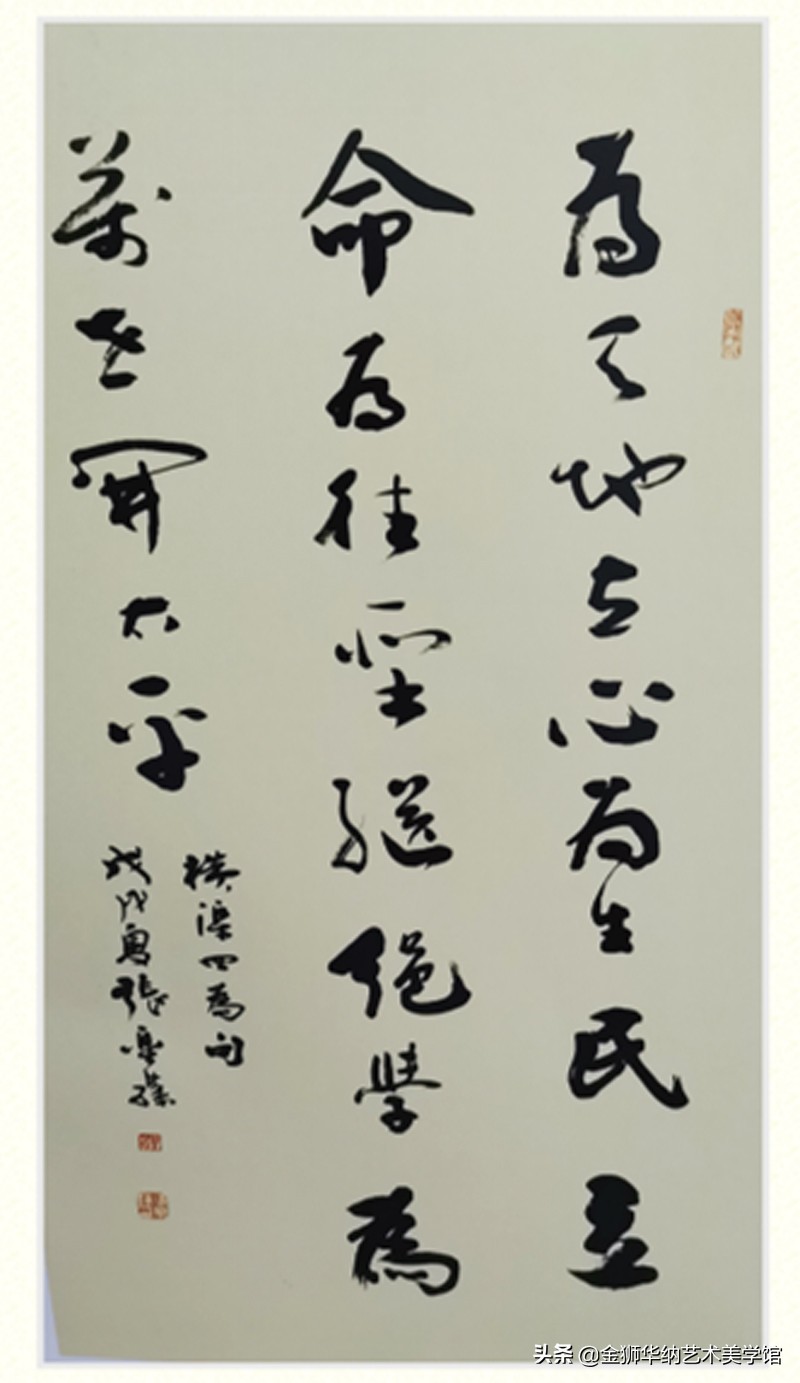 為天地立心為生民立
命為往聖繼絕學為
萬世開太平
橫渠四為句
戊戌夏張
头条 @金狮华纳艺术美学馆